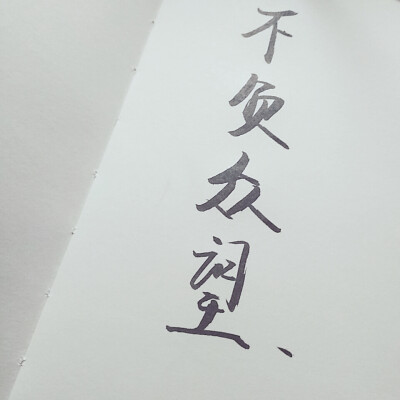 不负众望、